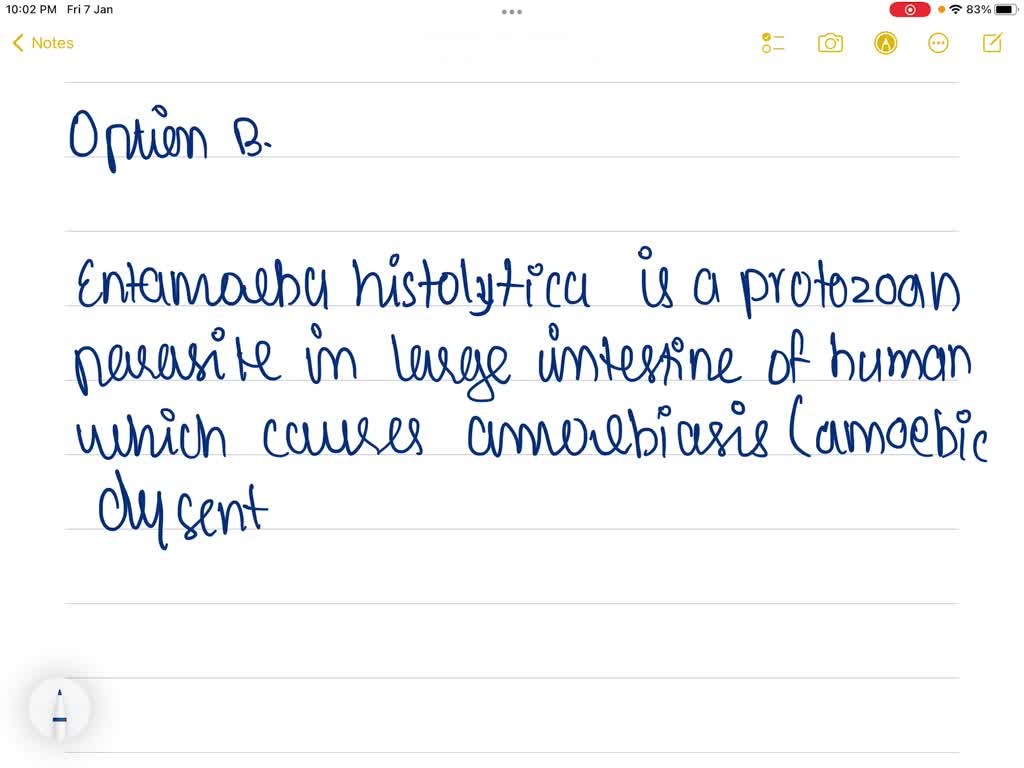 10:02 PM Fri 7 Jan 83%
Notes
Option B.
Entamoeba histolytica is a protozoan
parasite in large intestine of human
which causes amoebiasis (amoebic
dysent